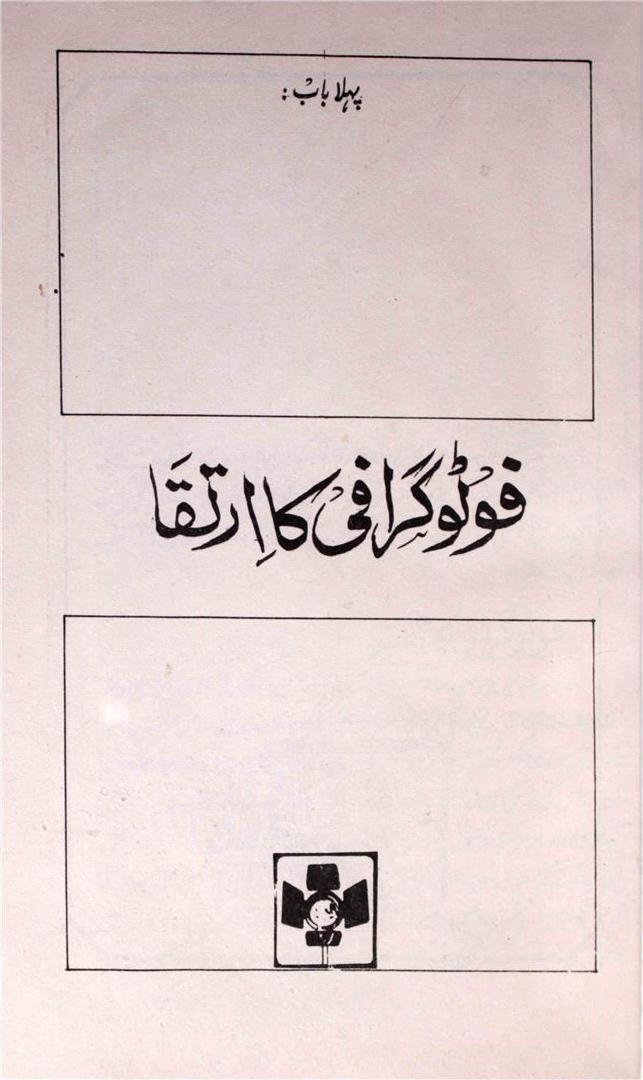 پہلا باب:
فوٹو گرافی کا اِرتقَا